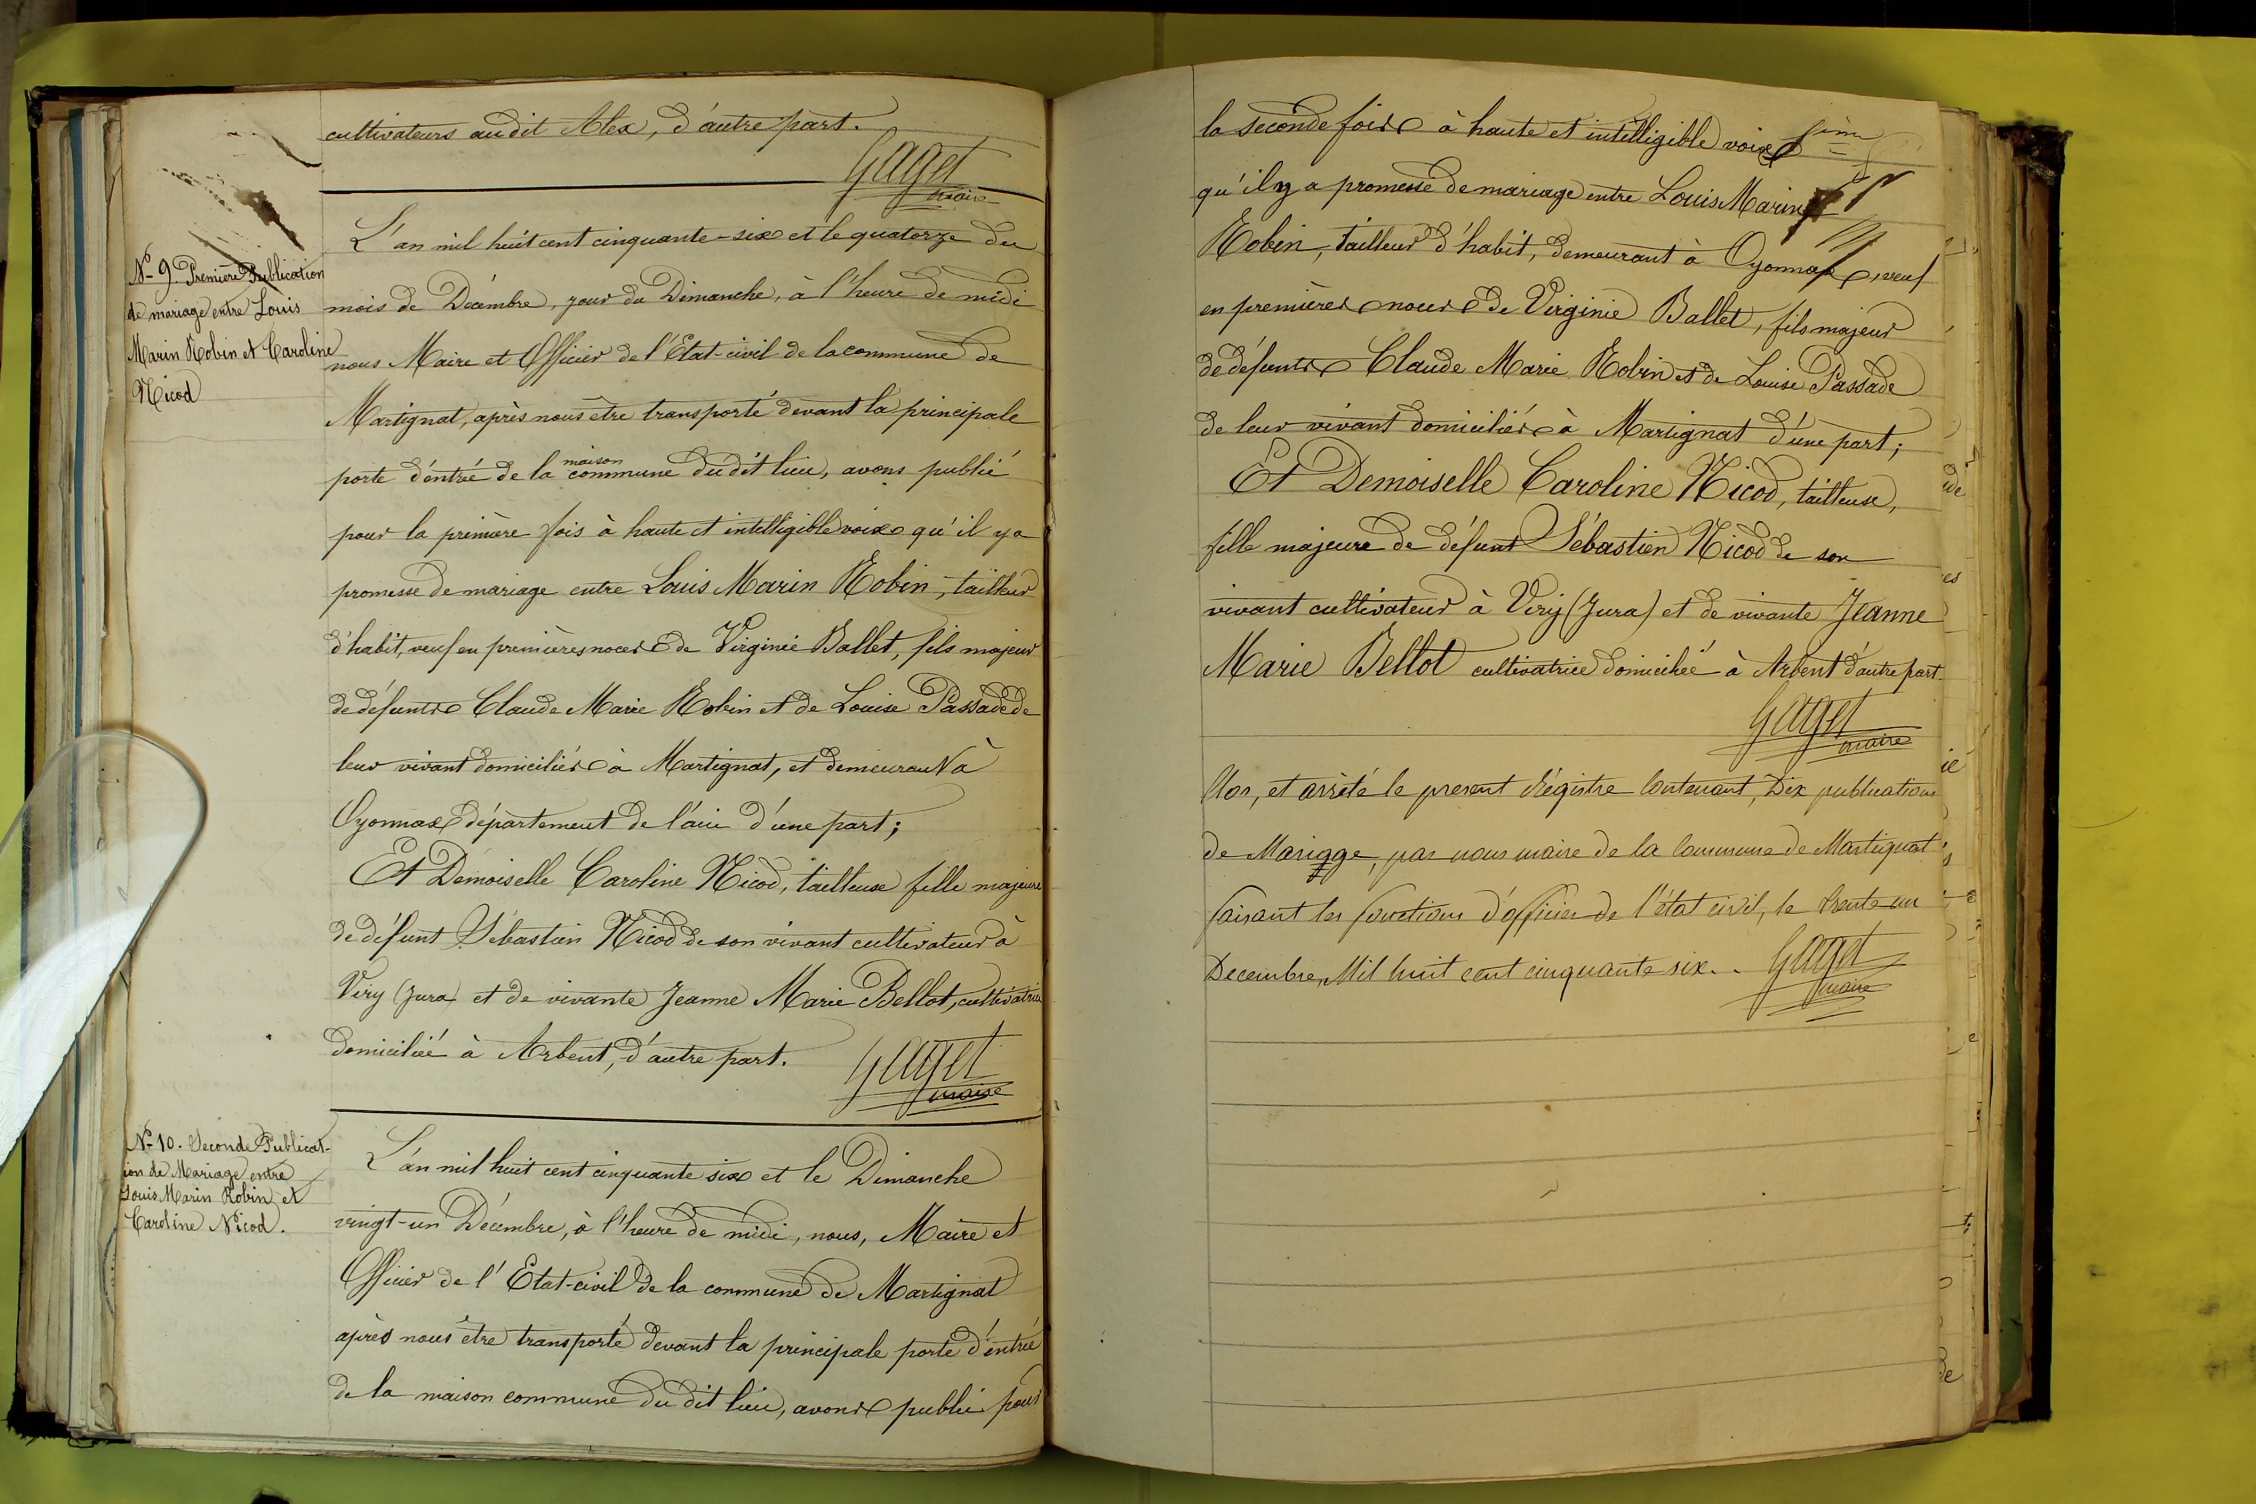 cultivateurs audit Alex, d'autre part.
Gaget
maire
N° 9. Première Publication
de mariage entre Louis
Marin Robin et Caroline
Nicod
L'an mil huit cent cinquante-six et le quatorze du
mois de Décembre, jour du Dimanche, à l'heure de midi
nous Maire et Officier de l'Etat-civil de la commune de
Martignat, après nous être transporté devant la principale
porte d'entrée de la maison commune du dit lieu, avons publié
pour la première fois à haute et intelligible voix qu'il y a
promesse de mariage entre Louis Marin Robin, tailleur
d'habit, veuf en premières noces de Virginie Ballet, fils majeur
de défunts Claude Marie Robin et de Louise Passade de
leur vivant domiciliés à Martignat, et demeurant à
Oyonnax département de l'ain d'une part;
Et Demoiselle Caroline Nicod, tailleuse fille majeure
de défunt Sébastien Nicod de son vivant cultivateur à
Viry (Jura) et de vivante Jeanne Marie Bellot, cultivatrice
domiciliée à Arbent, d'autre part.
Gaget
maire
N° 10. Seconde Publicat-
ion de Mariage entre
Louis Marin Robin et
Caroline Nicod.
L'an mil huit cent cinquante six et le Dimanche
vingt-un Décembre, à l'heure de midi, nous, Maire et
Officier de l'Etat-civil de la commune de Martignat
après nous être transporté devant la principale porte d'entrée
de la maison commune du dit lieu, avons publié pour
la seconde fois à haute et intelligible voix
qu'il y a promesse de mariage entre Louis Marin
Robin, tailleur d'habit, demeurant à Oyonnax, veuf
en premières noces de Virginie Ballet, fils majeur
de défunts Claude Marie Robin et de Louise Passade
de leur vivant domiciliés à Martignat d'une part;
Et Demoiselle Caroline Nicod, tailleuse,
fille majeure de défunt Sébastien Nicod de son
vivant cultivateur à Viry (Jura) et de vivante Jeanne
Marie Bellot cultivatrice domiciliée à Arbent d'autre part.
Gaget
maire
Clos, et arrêté le present Régistre Contenant, Dix publications
de Mariage, par nous maire de la Commune de Martignat
faisant les fonctions d'officier de l'état civil, le trente un
Decembre, Mil huit cent cinquante six.
Gaget
maire